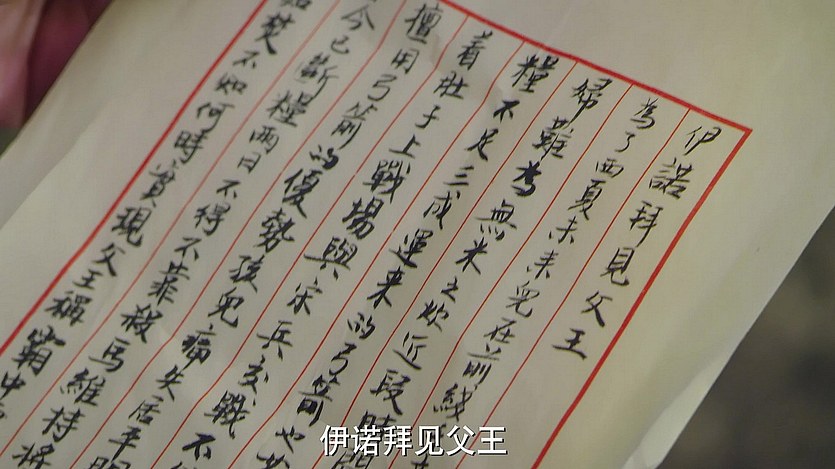 伊諾拜見父王
為了西夏未来兒在前綫
婦難為無米之炊近段時間
糧不足三成運来的弓箭也
着肚子上戰場與宋兵交戰不
擅用弓箭的優勢孩兒痛失居平關
今已斷糧兩日不得不靠殺馬維持
焚不知何時實現父王稱霸中
伊诺拜见父王